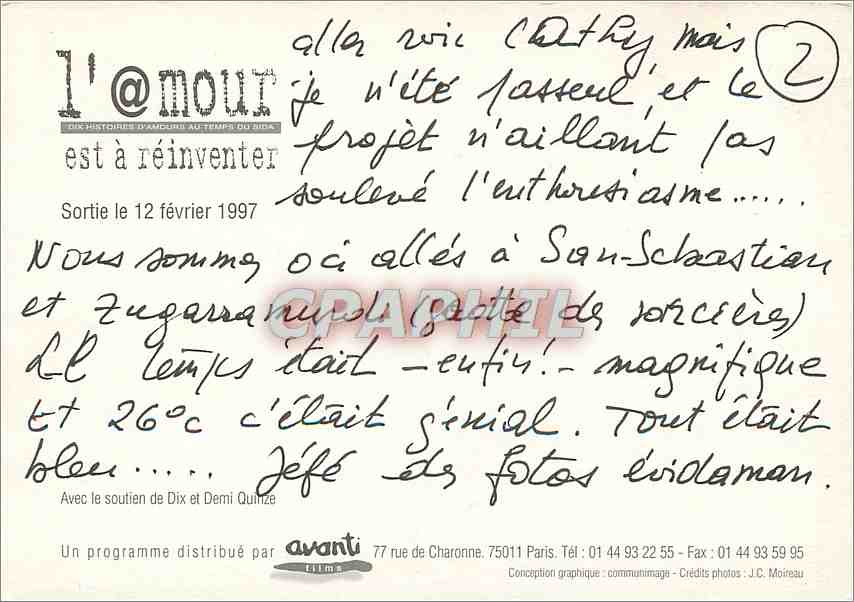 aller voir Cathy, mais
2
je n'été passeul, et le
projèt n'aillant pas
soulevé l'enthousiasme......
l'@mour
DIX HISTOIRES D'AMOURS AU TEMPS DU SIDA
est à réinventer
Sortie le 12 février 1997
Nous sommes oci allés à San-Sebastian
et Zugarramurdi (grotte des sorcières)
CPAPHIL
Le temps était - enfin! - magnifique
Et 26°c c'était génial. Tout était
bleu..... Jéfé des fotos évidaman.
Avec le soutien de Dix et Demi Quinze
Un programme distribué par avanti films 77 rue de Charonne. 75011 Paris. Tél : 01 44 93 22 55 - Fax : 01 44 93 59 95
Conception graphique : communimage - Crédits photos : J.C. Moireau